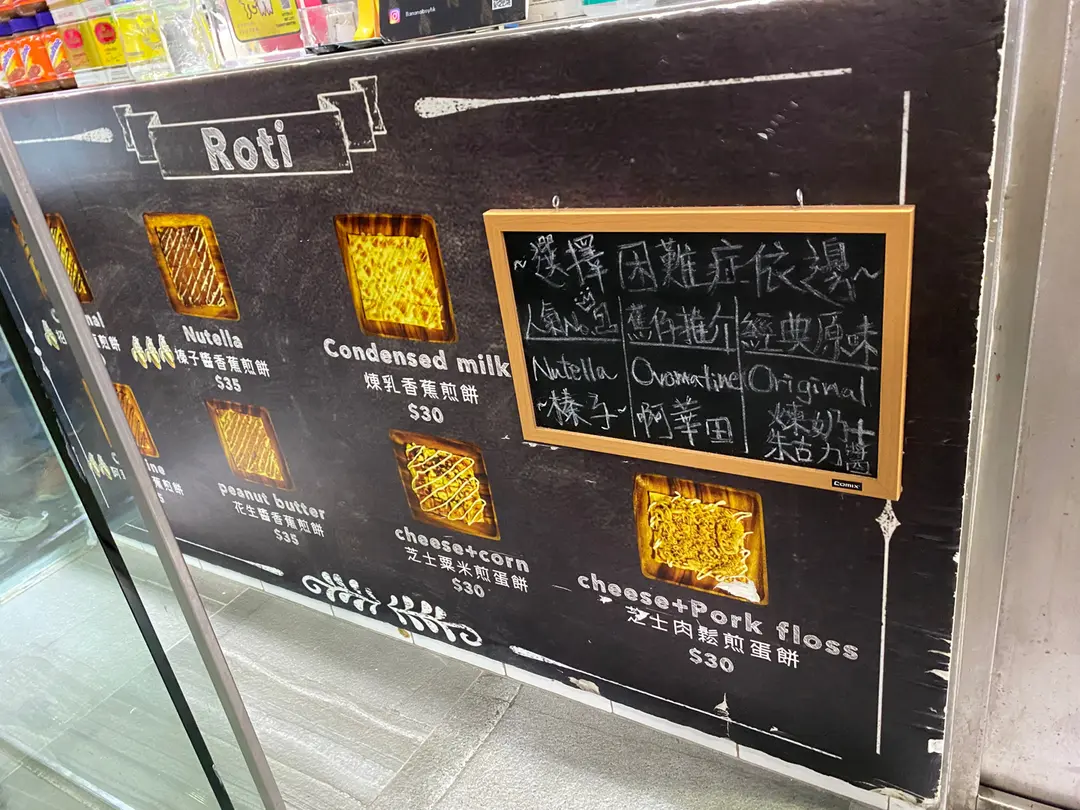 Bananaboyhk
Roti
Nutella
榛子醬香蕉煎餅
$35
Condensed milk
煉乳香蕉煎餅
$30
peanut butter
花生醬香蕉煎餅
$35
cheese+corn
芝士粟米煎蛋餅
$30
cheese+Pork floss
芝士肉鬆煎蛋餅
$30
~選擇困難症依邊~
人氣No.1
舊街推介
經典原味
Nutella
~榛子~
Ovomaltine
啊華田
Original
煉奶
朱古力醬
Comix